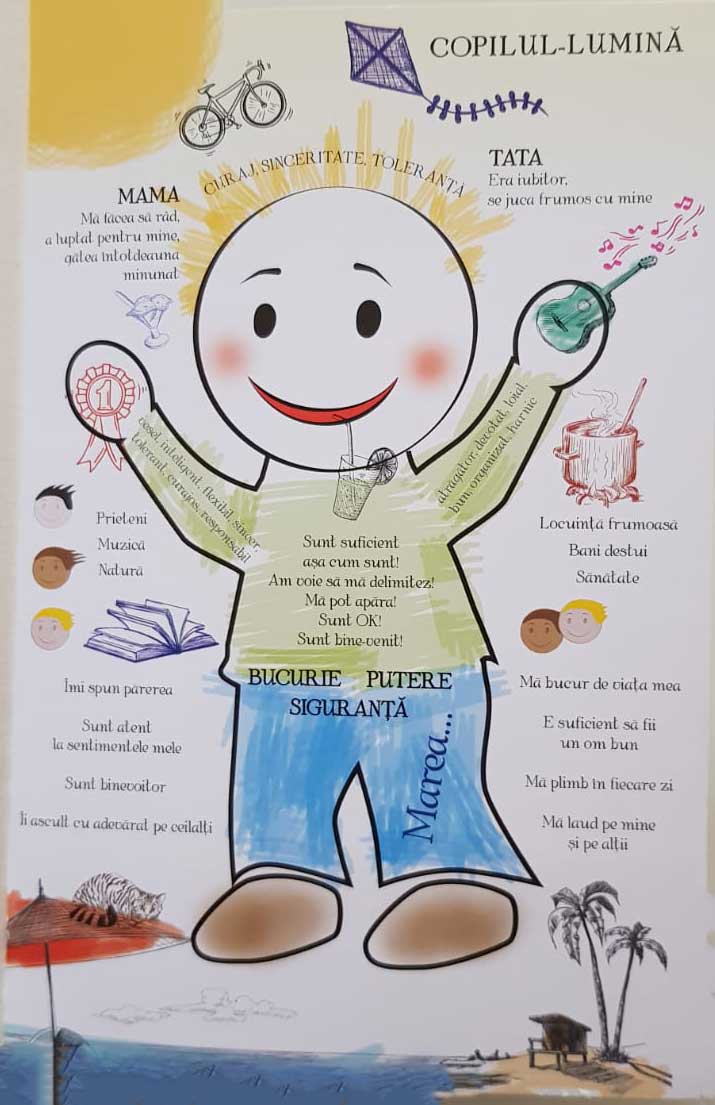 COPILUL-LUMINĂ
CURAJ, SINCERITATE, TOLERANȚĂ
MAMA
Mă făcea să râd,
a luptat pentru mine,
gătea întotdeauna
minunat
TATA
Era iubitor,
se juca frumos cu mine
1
vesel, inteligent, flexibil, sincer,
tolerant, curajos, responsabil
atrăgător, devotat, loial,
bun, organizat, harnic
Prieteni
Muzică
Natură
Sunt suficient
așa cum sunt!
Am voie să mă delimitez!
Mă pot apăra!
Sunt OK!
Sunt bine-venit!
Locuință frumoasă
Bani destui
Sănătate
BUCURIE PUTERE
SIGURANȚĂ
Marea...
Îmi spun părerea
Sunt atent
la sentimentele mele
Sunt binevoitor
Îi ascult cu adevărat pe ceilalți
Mă bucur de viața mea
E suficient să fii
un om bun
Mă plimb în fiecare zi
Mă laud pe mine
și pe alții